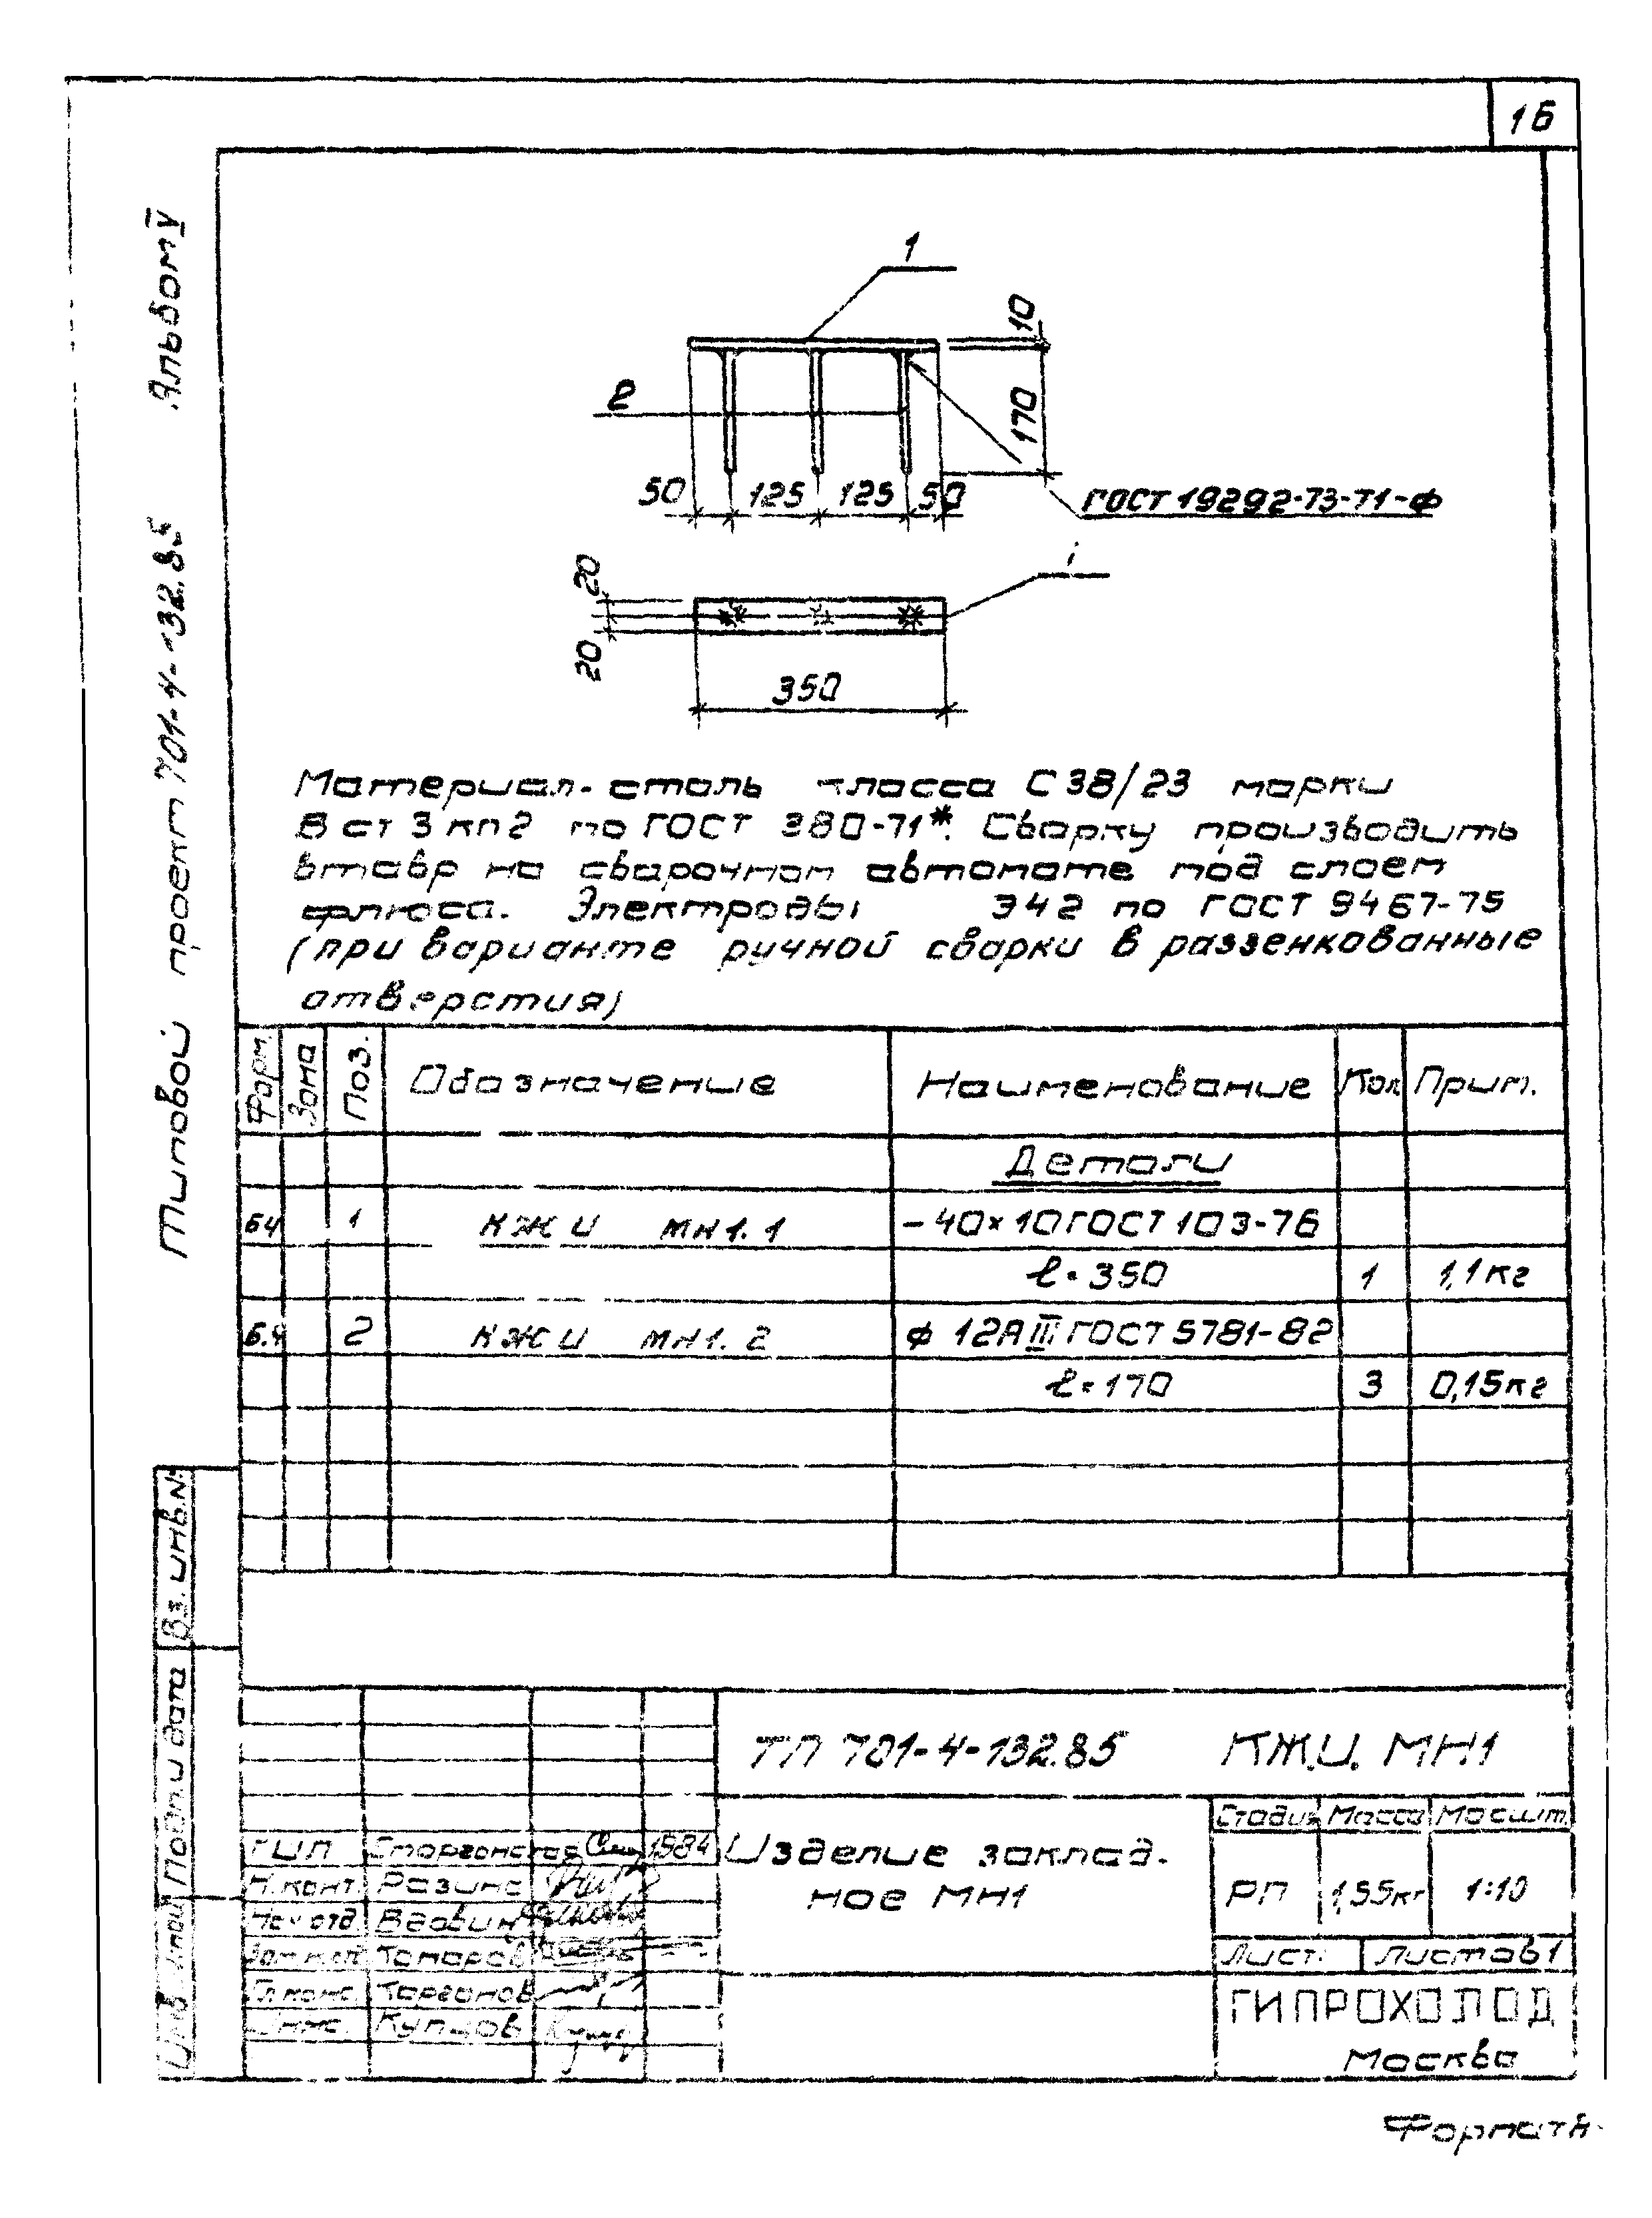 16
Альбом V
Типовой проект 701-4-132.85
1
10
2
170
50 125 125 50
ГОСТ 19292-73-Т1-Ф
20
20
350
Материал-сталь класса С38/23 марки
Вст3кп2 по ГОСТ 380-71*. Сварку производить
втавр на сварочном автомате под слоем
флюса. Электроды Э42 по ГОСТ 9467-75
(при варианте ручной сварки в раззенкованные
отверстия)
Форм. Зона Поз. Обозначение Наименование Кол. Прим.
Детали
БЧ 1 КЖИ МН1.1 -40×10 ГОСТ 103-76
ℓ=350 1 1,1кг
Б.Ч 2 КЖИ МН1.2 ф 12АIII ГОСТ 5781-82
ℓ=170 3 0,15кг
Вз. инв.N
Подп. и дата
ТП 701-4-132.85 КЖ.И. МН1
Стадия Масса Масшт.
ГИП 1984
Изделие заклад-
ное МН1
РП 1,55кг 1:10
Н.конт. Разина
Нач отд. Вдовин
Лист. Листов 1
Гл.конс. Торганов
Инж. Купцов
ГИПРОХОЛОД
Москва
Формат